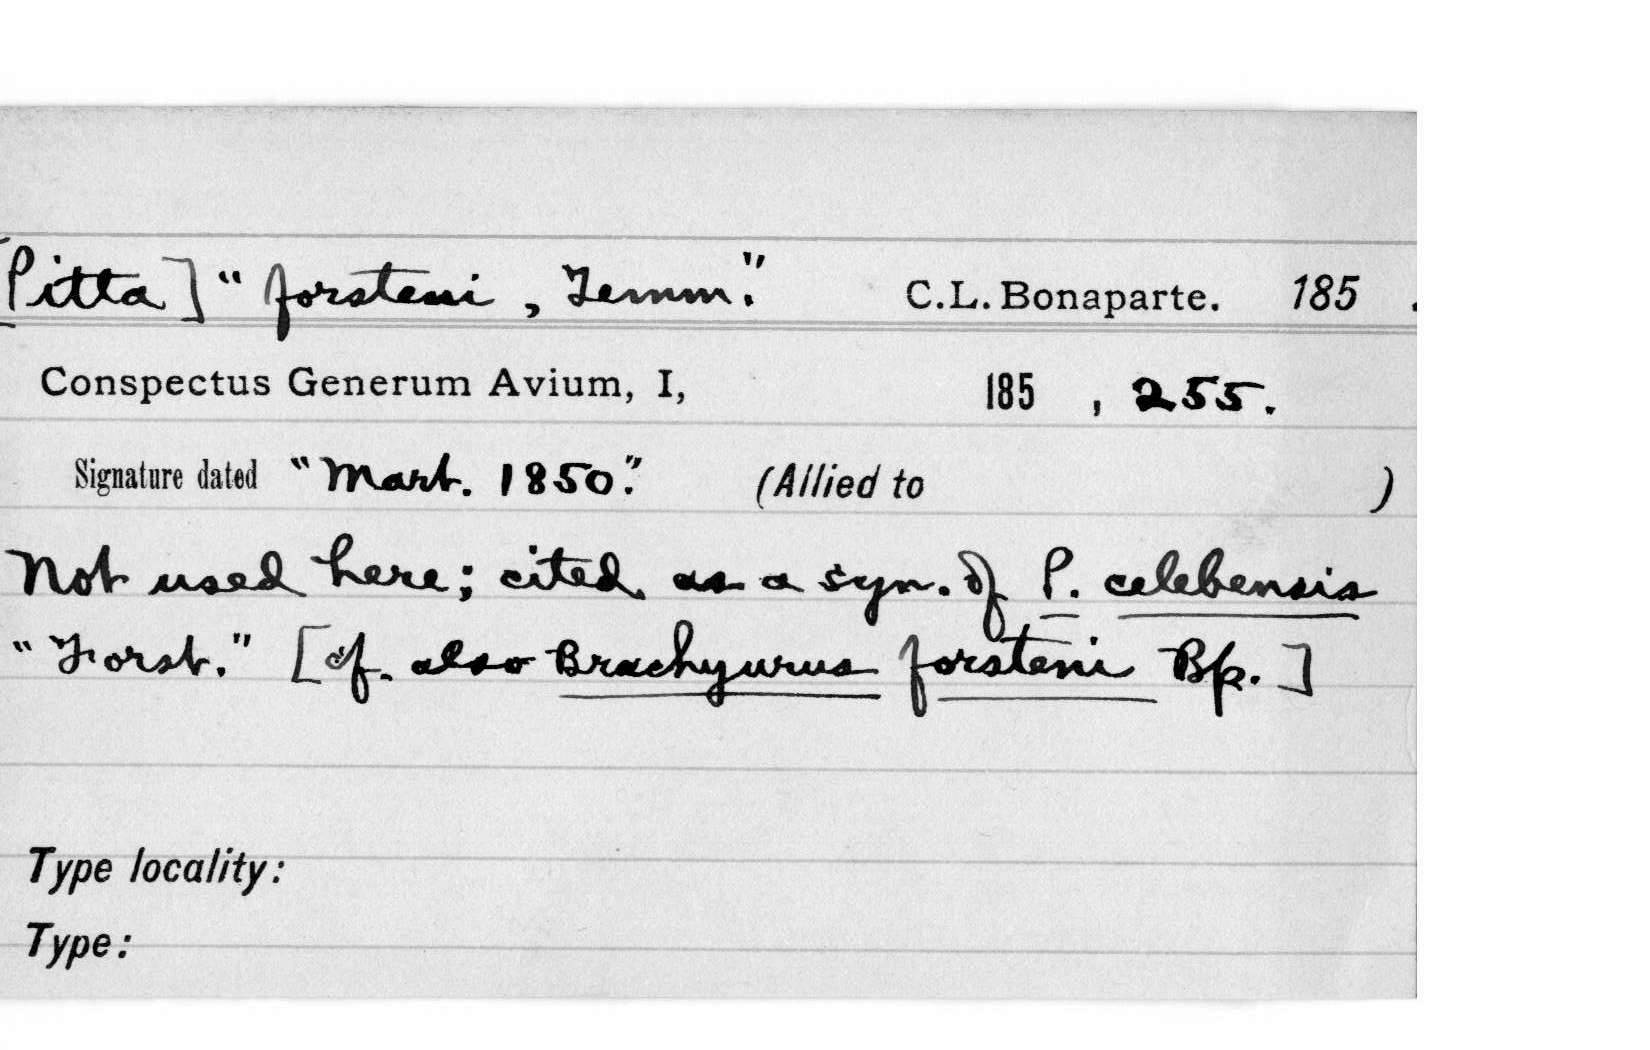 [Pitta] "forsteni, Temm." C.L. Bonaparte. 185 .
Conspectus Generum Avium, I, 185 , 255.
Signature dated "Mart. 1850." (Allied to )
Not used here; cited as a syn. of P. celebensis
"Forst." [cf. also Brachyurus forsteni Bp.]
Type locality:
Type: